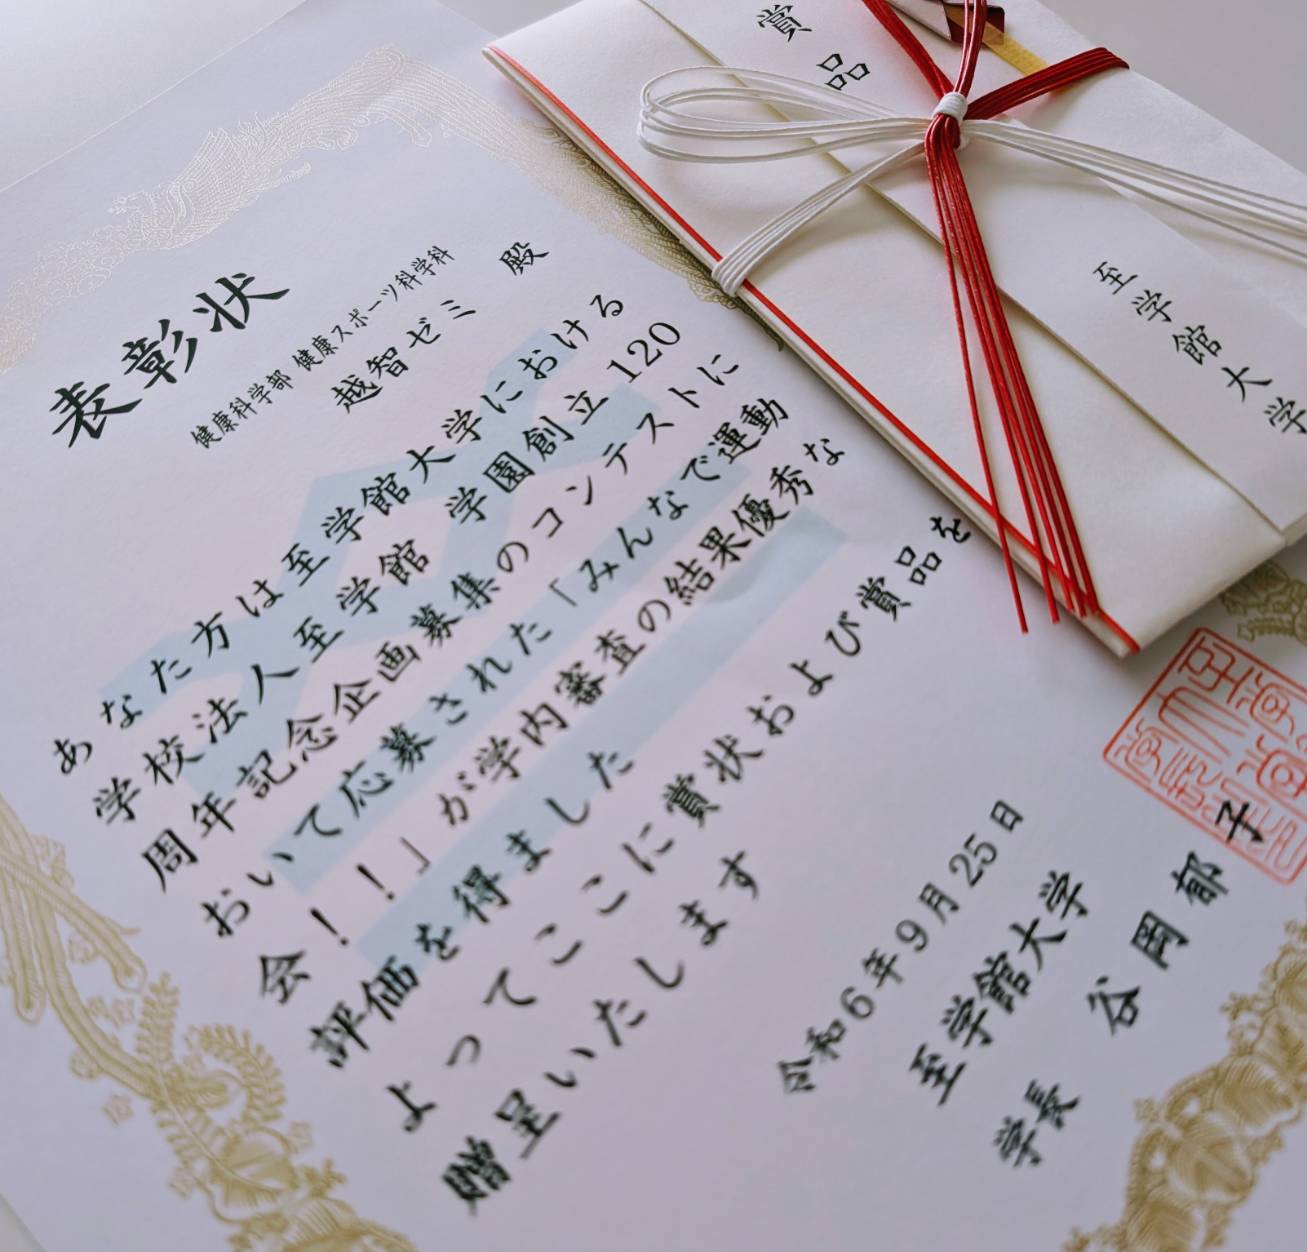 表彰状
健康科学部 健康スポーツ科学科
越智ゼミ 殿
あなた方は至学館大学における
学校法人至学館 学園創立120
周年記念企画募集のコンテストに
おいて応募された「みんなで運動
会！！」が学内審査の結果優秀な
評価を得ました
よってここに賞状および賞品を
贈呈いたします
令和6年9月25日
至学館大学
学長 谷岡郁子
賞品
至学館大学